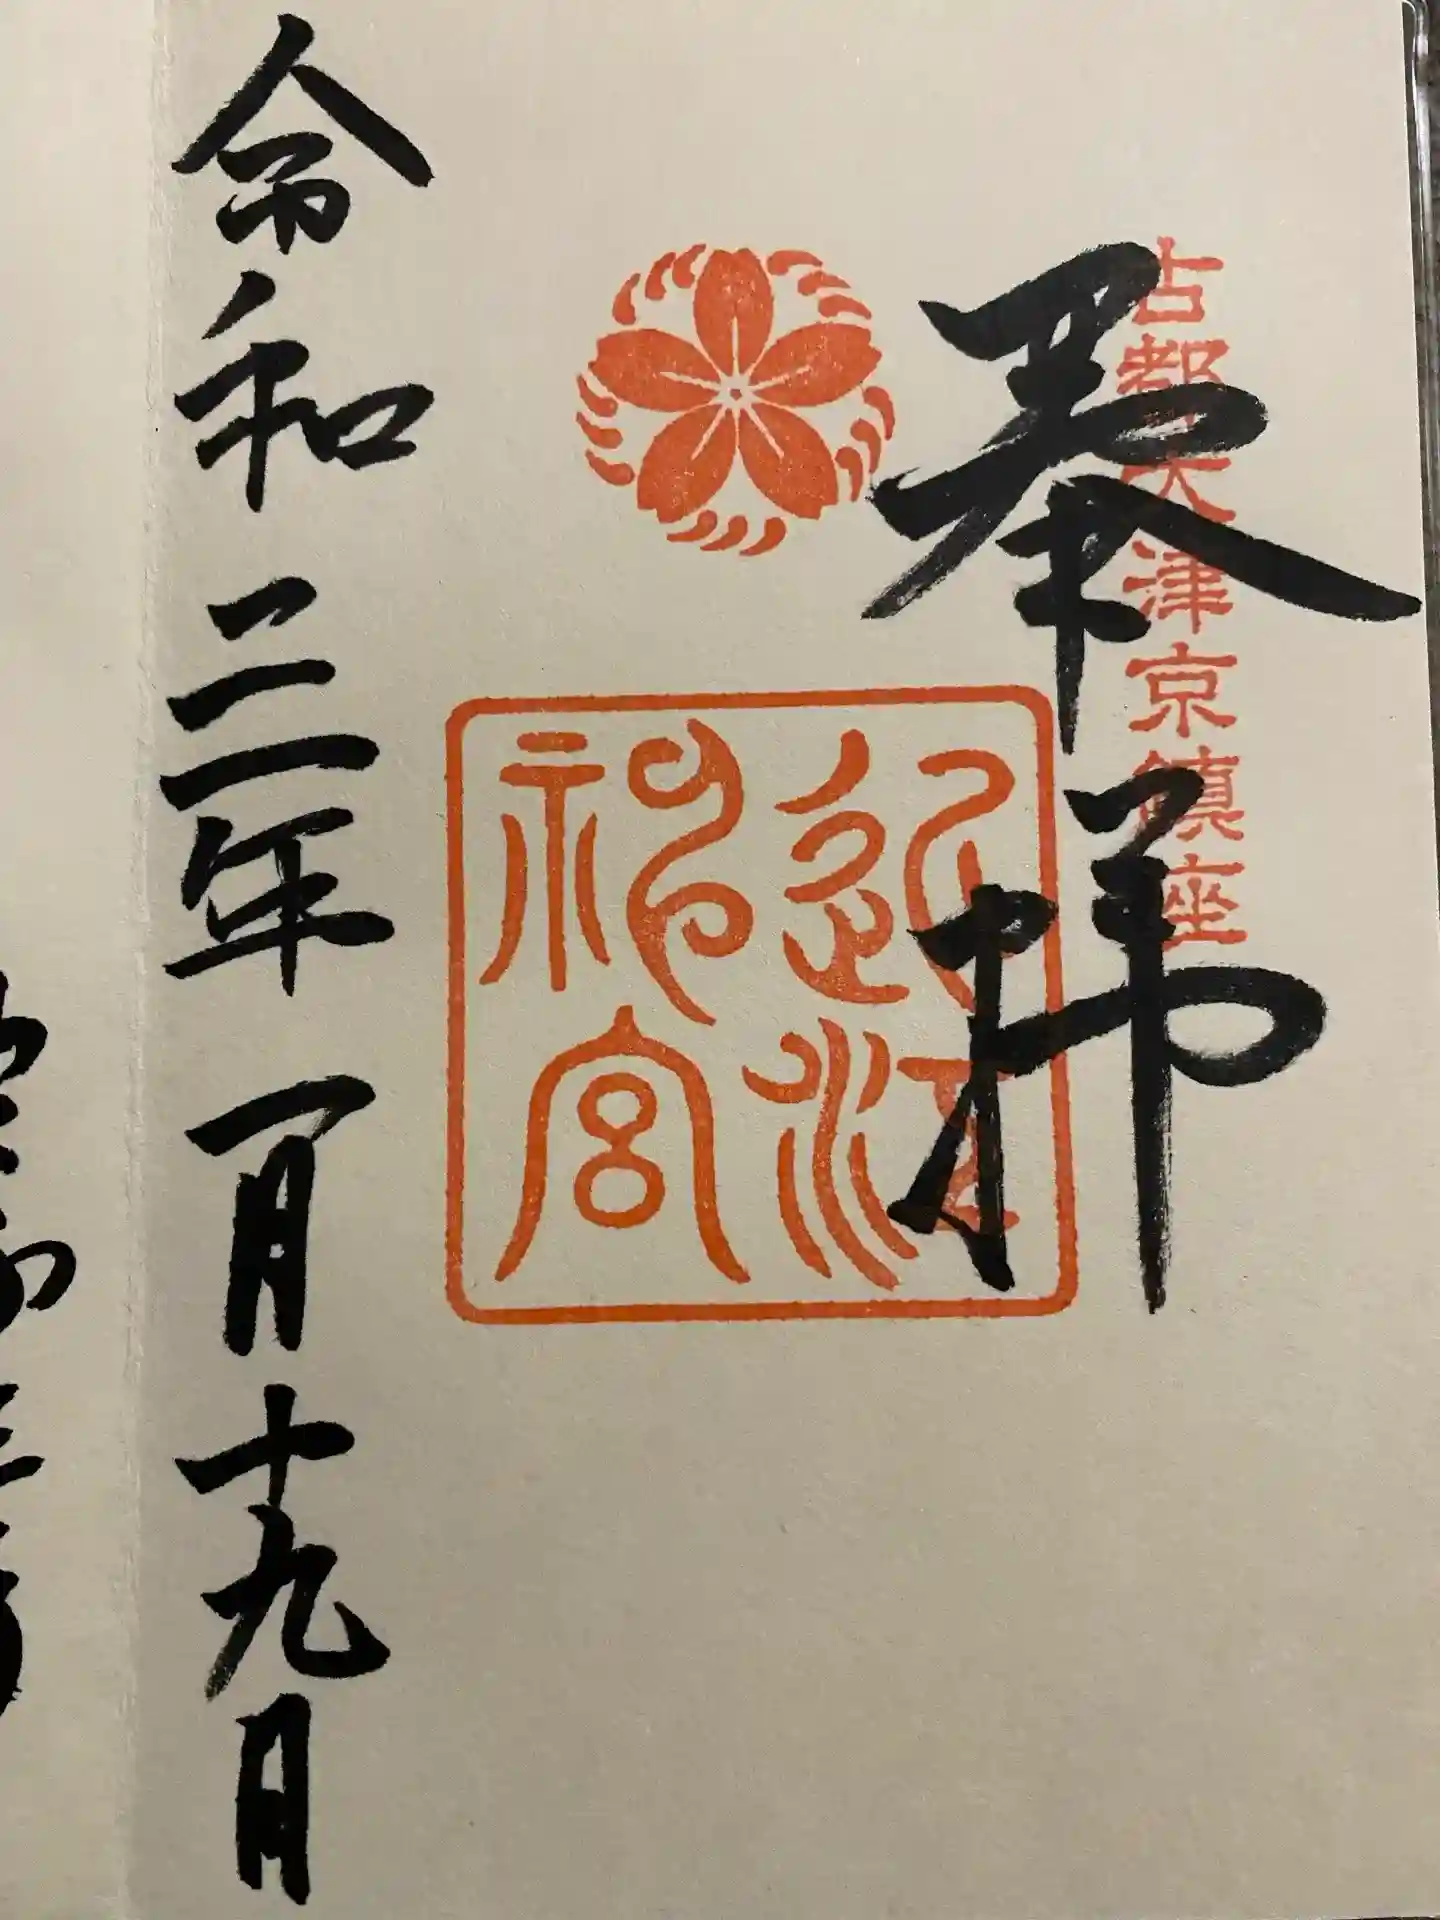 古都大津京鎮座
奉拝
近江
神宮
令和三年一月十九日